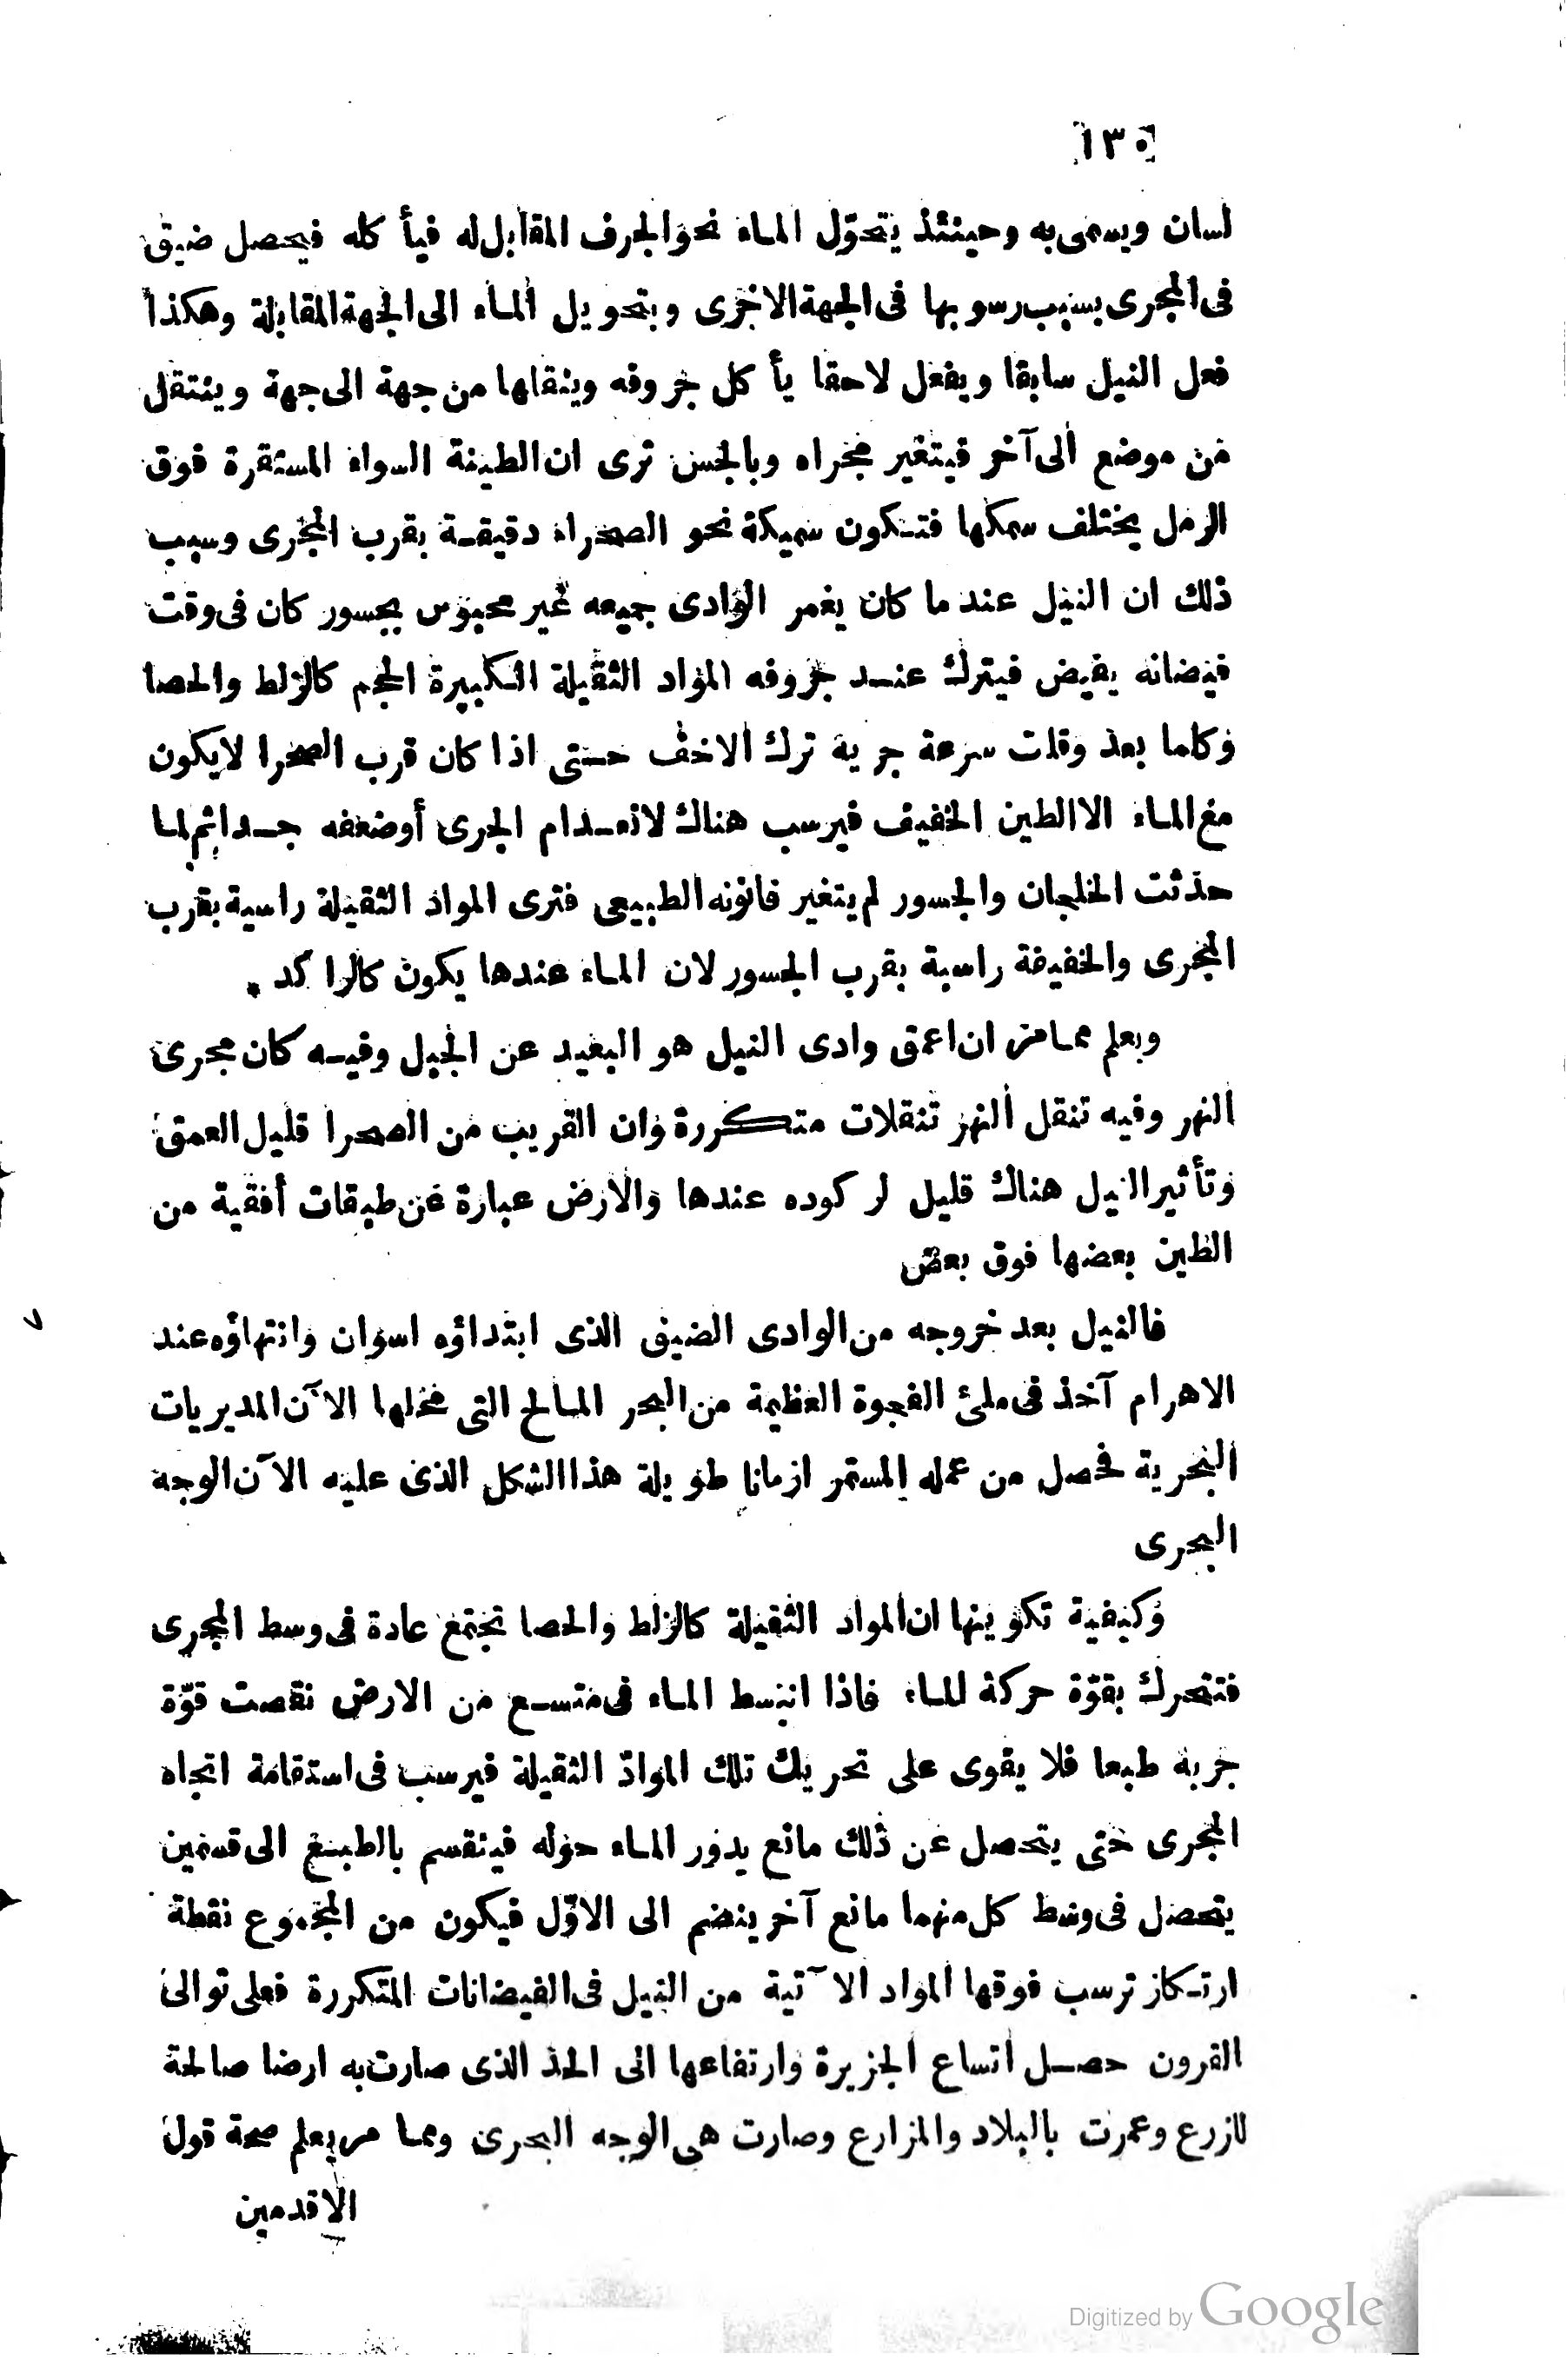 [١٣٥]
لسان ويسمى به وحينئذ يتحوّل الماء نحو الجرف المقابل له فيأ كله فيحصل ضيق
فى المجرى بسبب رسوبها فى الجهة الاخرى وبتحويل الماء الى الجهة المقابلة وهكذا
فعل النيل سابقا ويفعل لاحقا يأ كل جروفه وينقلها من جهة الى جهة وينتقل
من موضع الى آخر فيتغير مجراه وبالجس ترى ان الطينة السواء المستقرة فوق
الرمل يختلف سمكها فتكون سميكة نحو الصحراء دقيقة بقرب المجرى وسبب
ذلك ان النيل عند ما كان يغمر الوادى جميعه غير محبوس بجسور كان فى وقت
فيضانه يفيض فيترك عند جروفه المواد الثقيلة الكبيرة الحجم كالزلط والحصا
وكلما بعد وقلت سرعة جريه ترك الاخف حتى اذا كان قرب الصحرا لايكون
مع الماء الا الطين الخفيف فيرسب هناك لانعدام الجرى أوضعفه جدا ثم لما
حدثت الخلجان والجسور لم يتغير قانونه الطبيعى فترى المواد الثقيلة راسية بقرب
المجرى والخفيفة راسبة بقرب الجسور لان الماء عندها يكون كالرا كد .
ويعلم مما مر ان اعمق وادى النيل هو البعيد عن الجبل وفيه كان مجرى
النهر وفيه تنقل النهر تنقلات متكررة وان القريب من الصحرا قليل العمق
وتأثير النيل هناك قليل لر كوده عندها والارض عبارة عن طبقات أفقية من
الطين بعضها فوق بعض
فالنيل بعد خروجه من الوادى الضيق الذى ابتداؤه اسوان وانتهاؤه عند
الاهرام آخذ فى ملئ الفجوة العظيمة من البحر المالح التى محلها الآن المديريات
البحرية فحصل من عمله المستمر ازمانا طويلة هذا الشكل الذى عليه الآن الوجه
البحرى
وكيفية تكوينها ان المواد الثقيلة كالزلط والحصا تجتمع عادة فى وسط المجرى
فتتحرك بقوّة حركة الماء فاذا انبسط الماء فى متسع من الارض نقصت قوّة
جريه طبعا فلا يقوى على تحريك تلك الموادّ الثقيلة فيرسب فى استقامة اتجاه
المجرى حتى يتحصل عن ذلك مانع يدور الماء حوله فينقسم بالطبع الى قسمين
يتحصل فى وسط كل منهما مانع آخر ينضم الى الاوّل فيكون من المجموع نقطة
ارتكاز ترسب فوقها المواد الآتية من النيل فى الفيضانات المتكررة فعلى توالى
القرون حصل اتساع الجزيرة وارتفاعها الى الحد الذى صارت به ارضا صالحة
للزرع وعمرت بالبلاد والمزارع وصارت هى الوجه البحرى ومما مر يعلم صحة قول
الاقدمين
Digitized by Google